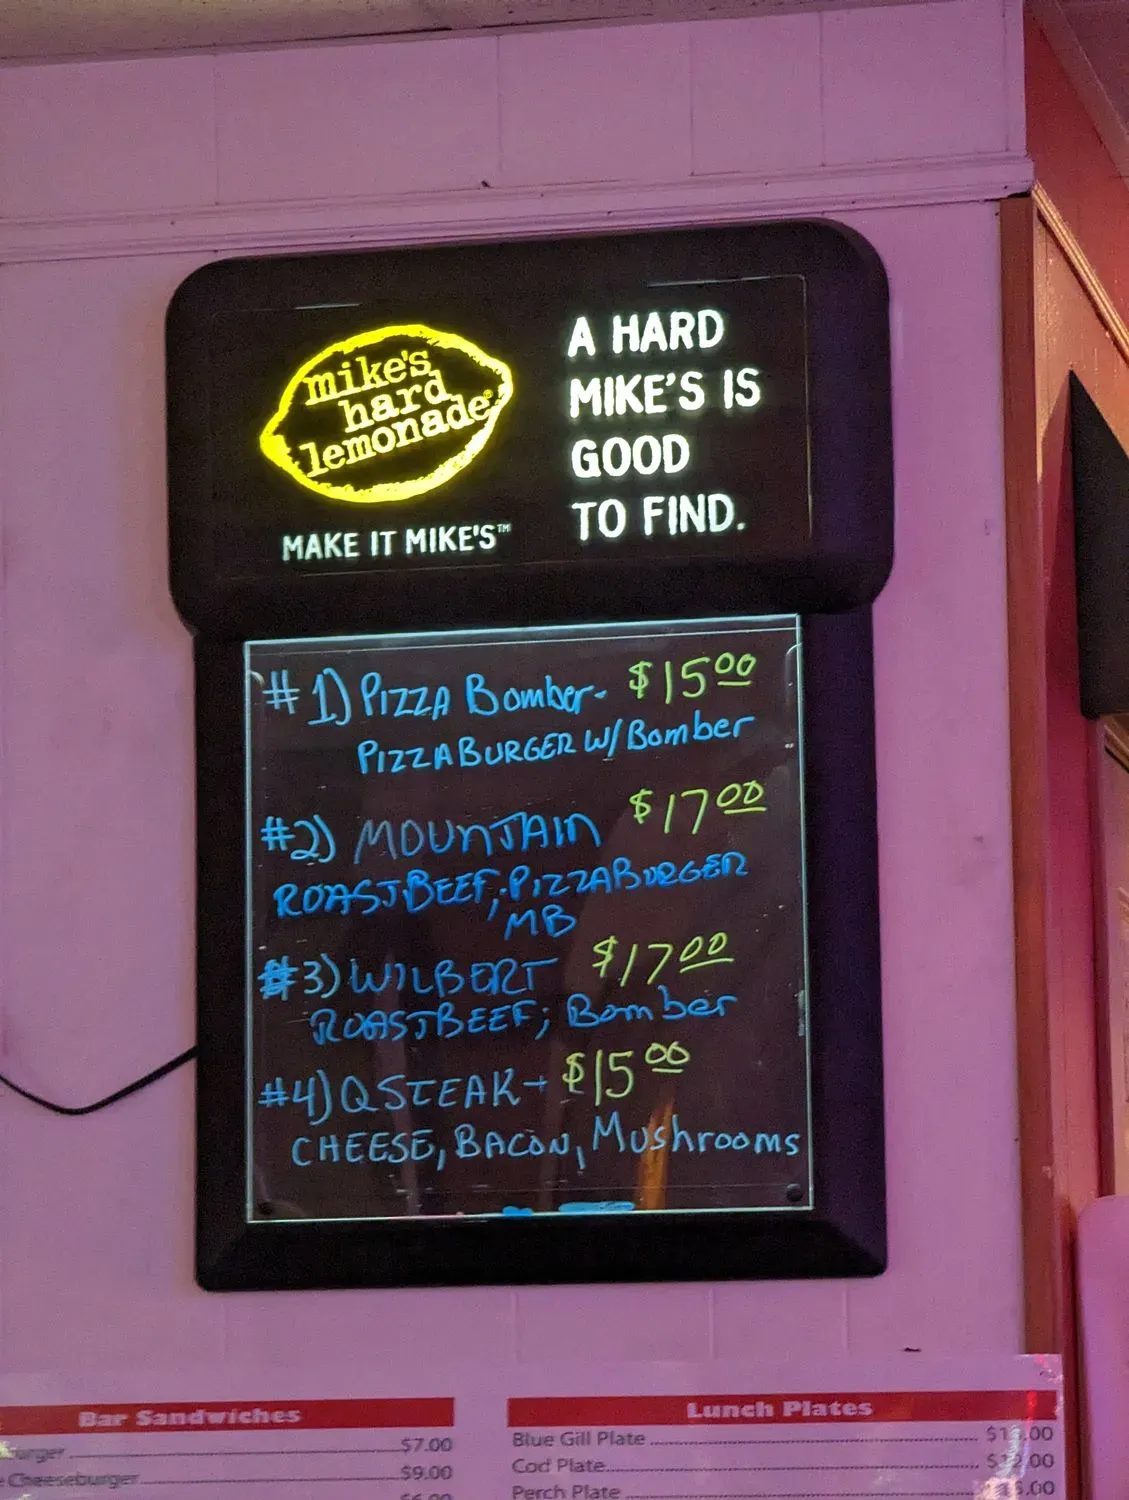 mike's
hard
lemonade®
MAKE IT MIKE'S™
A HARD
MIKE'S IS
GOOD
TO FIND.
#1) PIZZA Bomber- $1500
PIZZABURGER W/Bomber
#2) MOUNTAIN $1700
ROASTBEEF, PIZZABURGER
MB
#3) WILBERT $1700
ROASTBEEF; Bomber
#4) QSTEAK- $1500
CHEESE, BACON, Mushrooms
Bar Sandwiches
$7.00
Cheeseburger $9.00
Lunch Plates
Blue Gill Plate
Cod Plate
Perch Plate